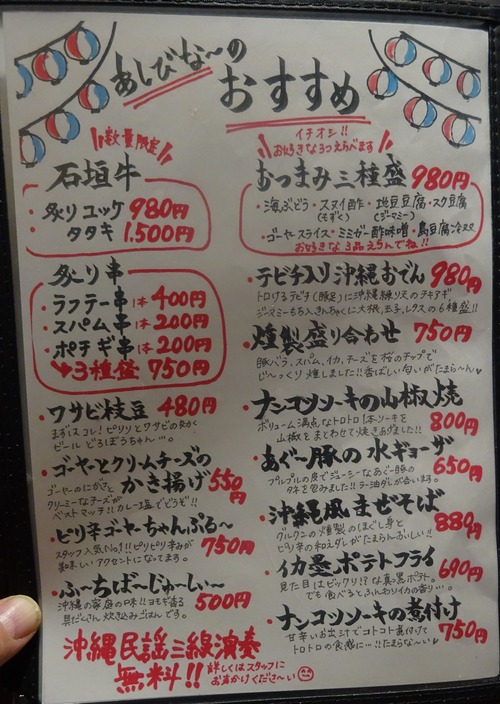 あしびな〜の
おすすめ
数量限定
石垣牛
・炙りユッケ 980円
・タタキ 1.500円
炙り串
・ラフテー串 1本 400円
・スパム串 1本 200円
・ポチギ串 1本 200円
3種盛 750円
・ワサビ枝豆 480円
まずはコレ!ピリッとワサビの効く
ビールどろぼうちゃん…。
・ゴーヤーとクリームチーズの
かき揚げ 550円
ゴーヤーのにがさと
クリーミーなチーズが
ベストマッチ!!カレー塩でどうぞ!!
・ピリ辛ゴーヤーちゃんぷる〜
750円
スタッフ人気No.1!!ピリピリ辛みが
美味しいアクセントになってます。
・ふ〜ちば〜じゅ〜しぃ〜
500円
沖縄の家庭の味!!ヨモギ香る
具だ〜さん炊き込みごはんです。
沖縄民謡三線演奏
無料!!
詳しくはスタッフに
お声かけくださ〜い
イチオシ!!
お好きな3つえらべます
おつまみ三種盛 980円
・海ぶどう・スヌイ酢・地豆豆腐・スク豆腐
(もずく)
(ジーマミー)
・ゴーヤースライス・ミミガー酢味噌・島豆腐冷奴
お好きな3品えらんでね!!
・テビチ入り沖縄おでん 980円
トロけるテビチ(豚足)に沖縄練り天のチキアギ
ジーマミーもち入きんちゃくに大根、玉子、レタスの6種盛!!
・燻製盛り合わせ 750円
豚バラ、スパム、イカ、チーズを桜のチップで
じ〜っくり燻しました!!香ばしい匂いがたまら〜ん♥
・ナンコツソーキの山椒焼
800円
ボリューム満点なトロトロ1本ソーキを
山椒をまとわせて焼きあげました!!
・あぐー豚の水ギョーザ
650円
プルプルの皮でジューシーなあぐー豚の
タネを包みました!!ラー油ダレが合います。
・沖縄風まぜそば
880円
グルクンの燻製のほぐし身と
ピリ辛の和えダレがたまらんおいしい!!
・イカ墨ポテトフライ
690円
見た目はビックリ!?な真黒ポテト。
でも食べるとふんわりイカの香り…。
・ナンコツソーキの煮付け
750円
甘辛いお出汁でコトコト煮付けて
トロトロの食感に…!!たまらな〜い♥